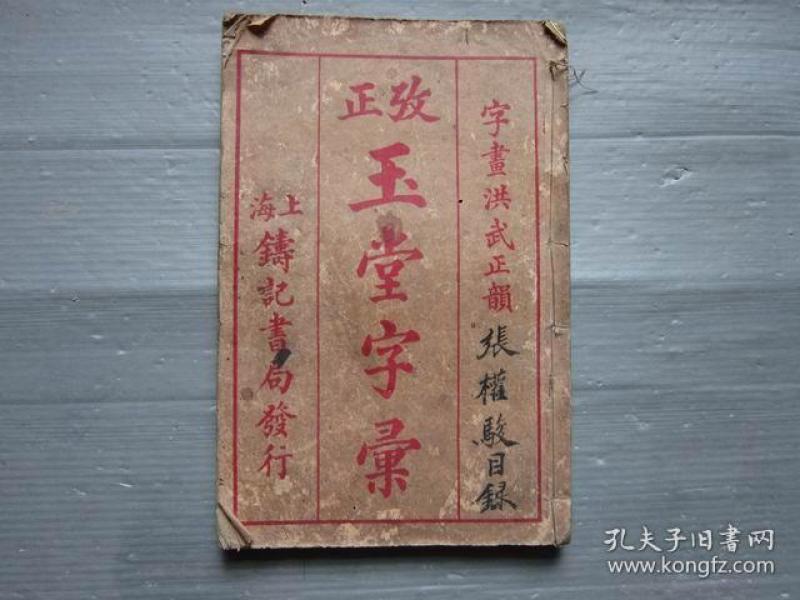 字畫洪武正韻
張權駿目録
攷正
玉堂字彙
上海
鑄記書局發行
孔夫子旧書网
www.kongfz.com